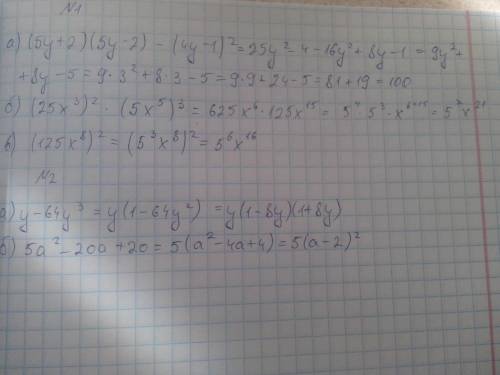 N1
а) (5y+2)(5y-2) - (4y-1)² = 25y² - 4 - 16y² + 8y - 1 = 9y² +
+ 8y - 5 = 9·3² + 8·3 - 5 = 9·9 + 24 - 5 = 81 + 19 = 100
б) (25x³)² · (5x⁵)³ = 625x⁶ · 125x¹⁵ = 5⁴ · 5³ · x⁶⁺¹⁵ = 5⁷x²¹
в) (125x⁸)² = (5³x⁸)² = 5⁶x¹⁶
N2
а) y - 64y³ = y(1 - 64y²) = y(1 - 8y)(1 + 8y)
б) 5a² - 20a + 20 = 5(a² - 4a + 4) = 5(a - 2)²